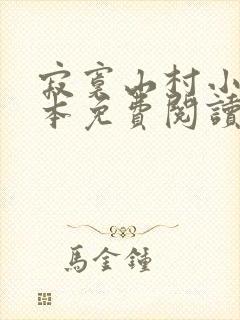 寂寞山村小
本免費閱讀
馬金鍾